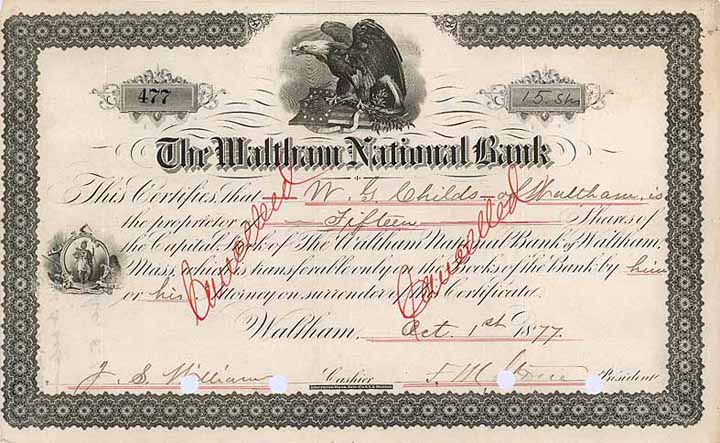 477
15. Shs
The Waltham National Bank
This Certifies that W. G. Childs of Waltham, is
the proprietor of Fifteen Shares of
the Capital Stock of The Waltham National Bank of Waltham,
Mass. which is transferable only on the Books of the Bank by him
or his Attorney on surrender of this Certificate.
Cancelled
Cancelled
Waltham, Oct. 1st 1877.
J. S. Williams Cashier
F. M. President